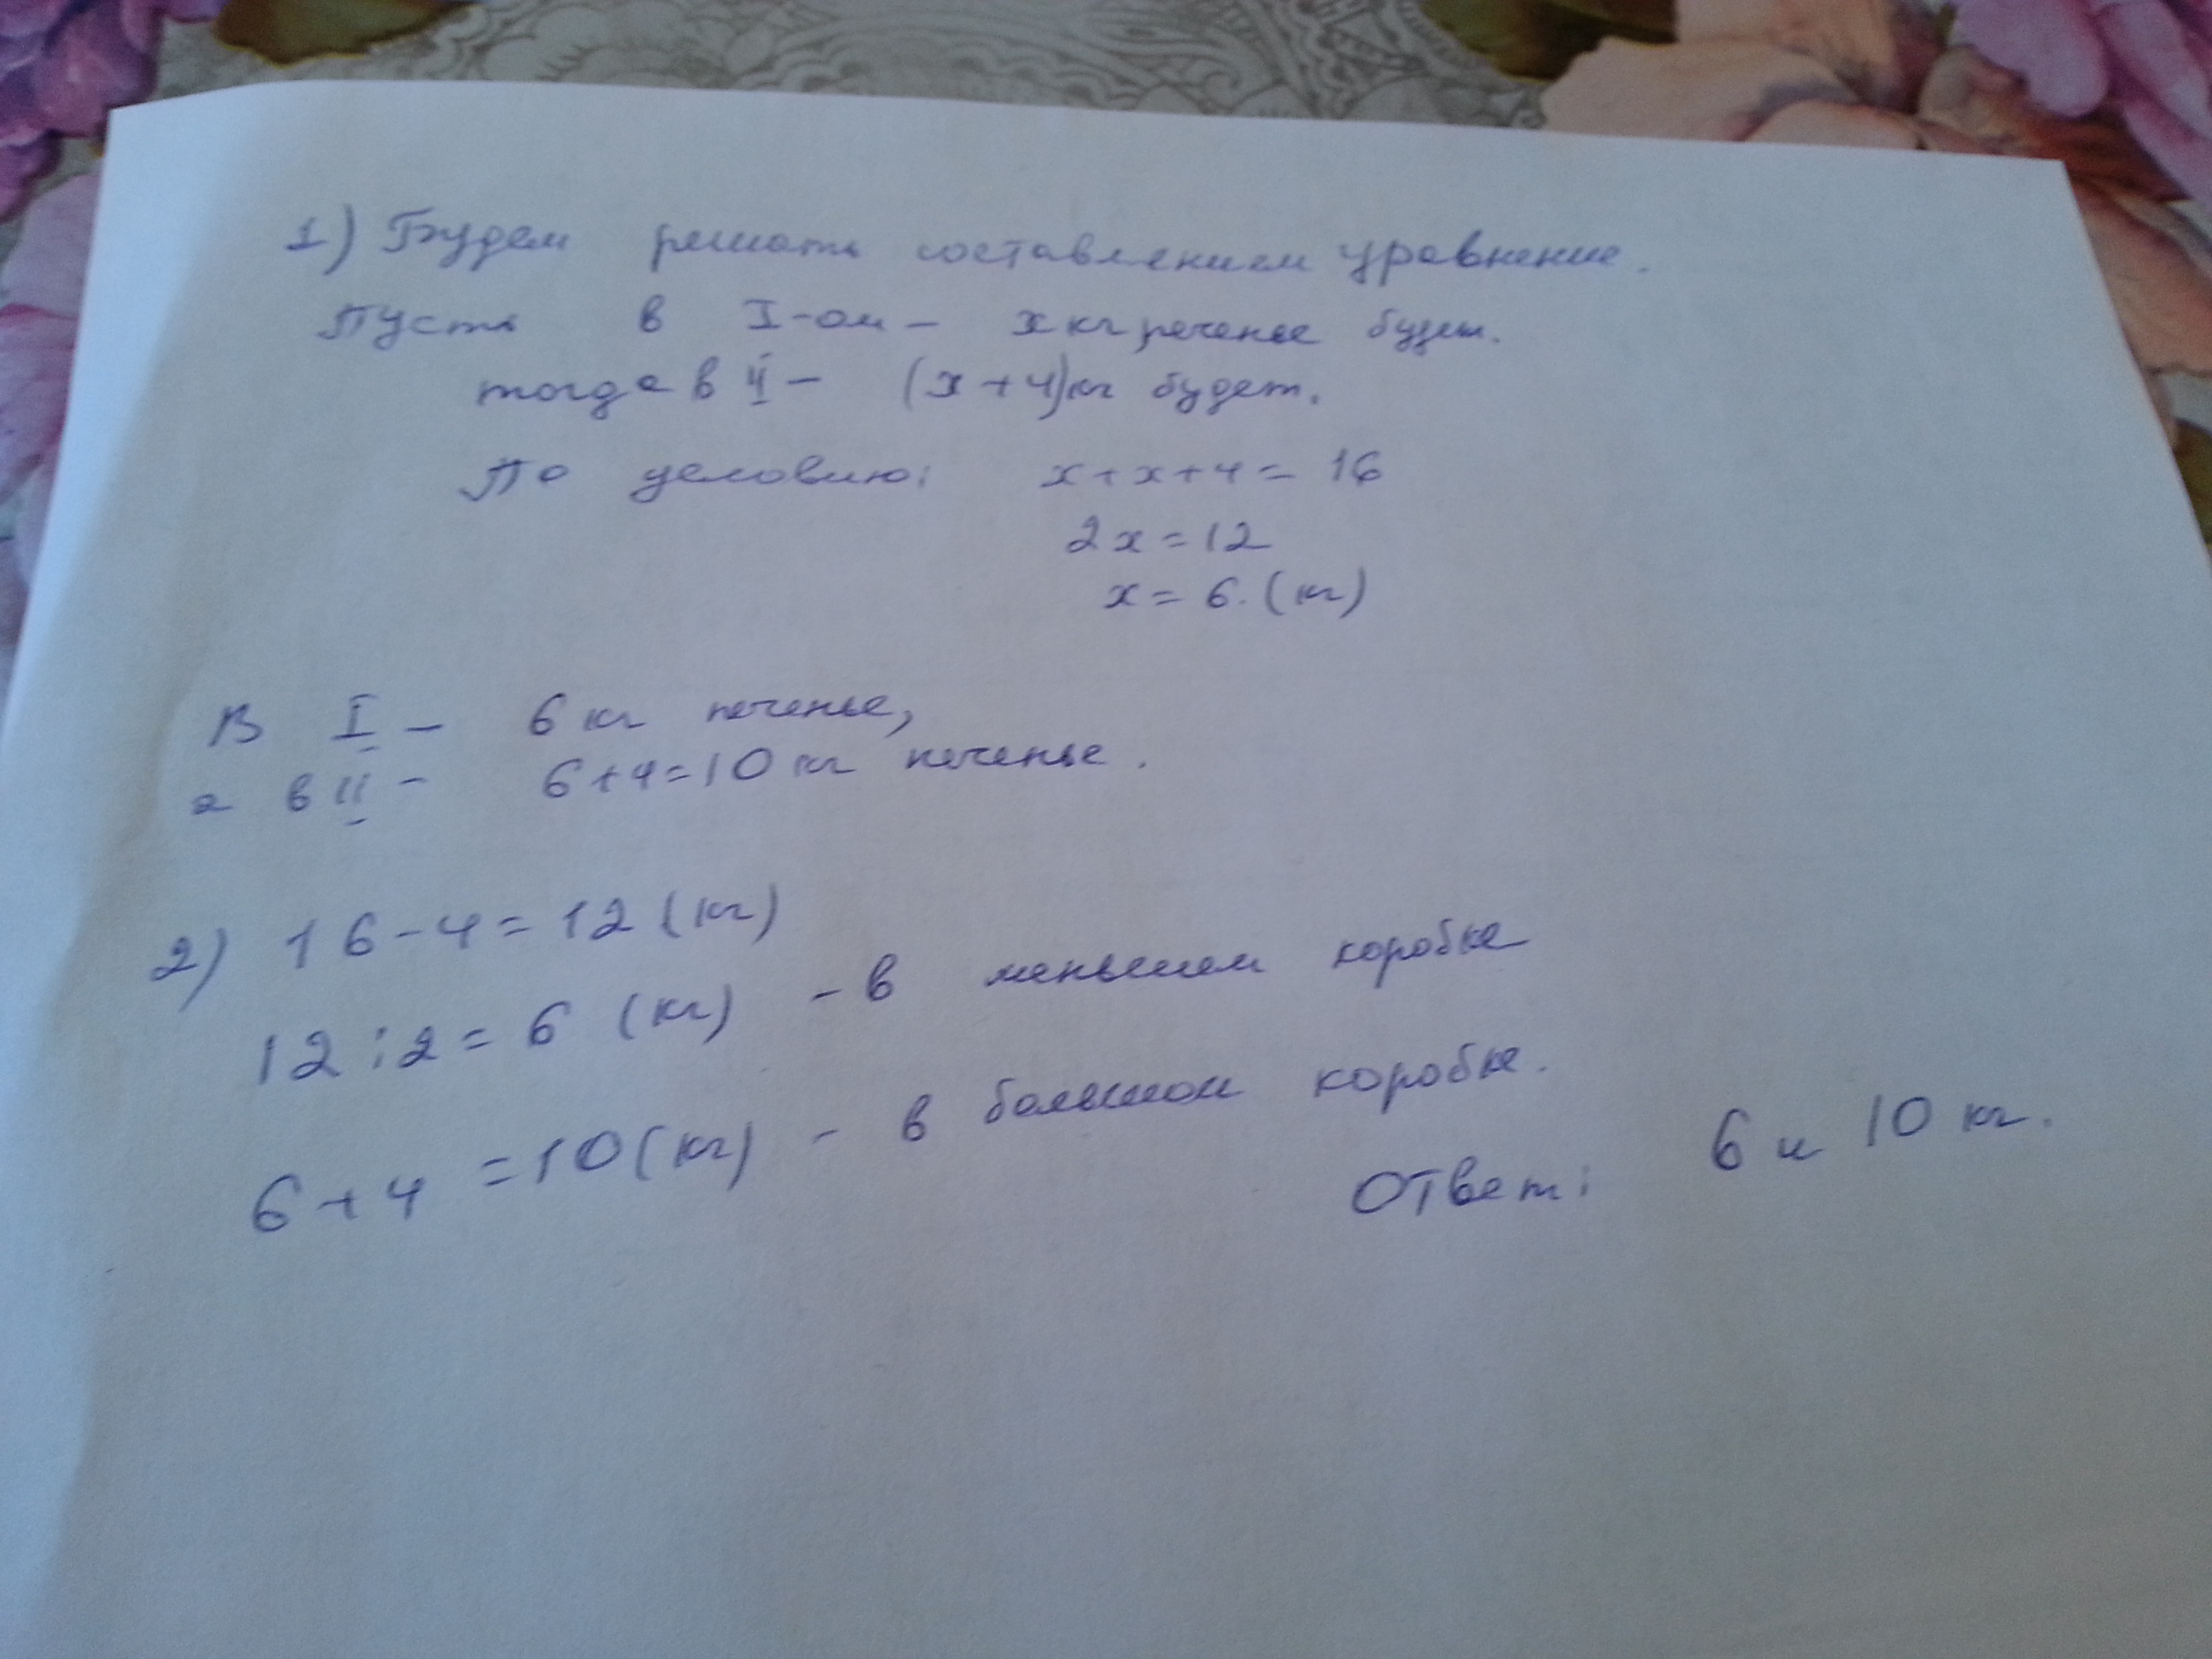 1) Будем решать составлением уравнение.
Пусть в I-ом - x кг печенье будет.
тогда в II - (x+4)кг будет.
По условию: x+x+4=16
2x=12
x=6.(кг)
В I - 6 кг печенье,
а в II - 6+4=10 кг печенье.
2) 16-4=12(кг)
12:2=6 (кг) - в меньшем коробке
6+4=10(кг) - в большом коробке.
Ответ: 6 и 10 кг.